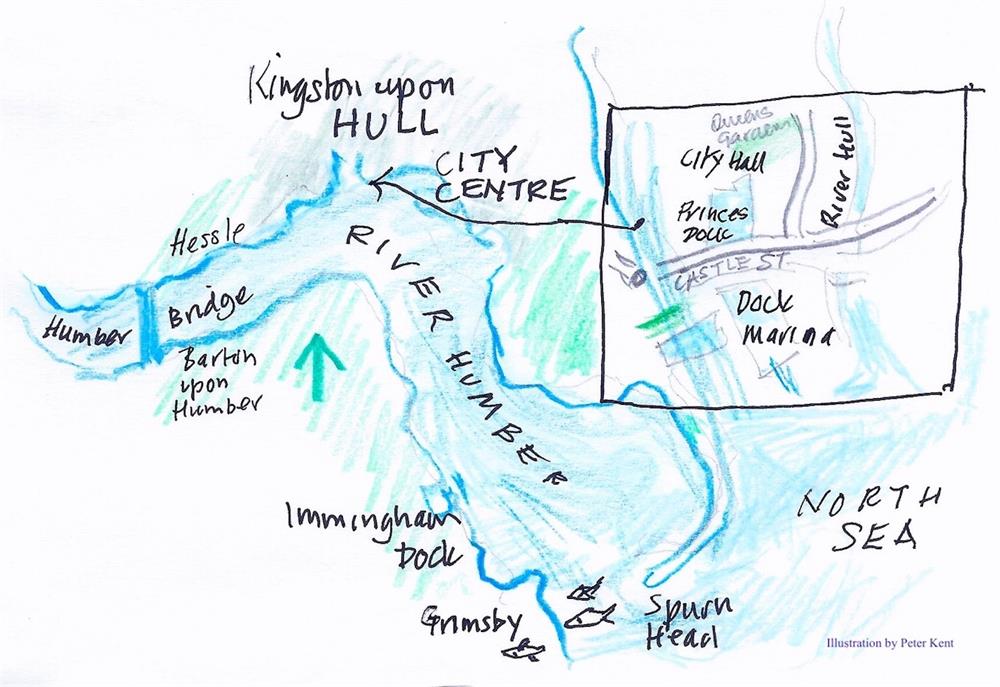 Kingston upon
HULL
CITY
CENTRE
Hessle
Humber
Bridge
Barton
upon
Humber
RIVER HUMBER
Immingham
Dock
Grimsby
Spurn
Head
NORTH
SEA
Queens
Gardens
City Hall
River Hull
Princes
Dock
CASTLE ST
Dock
Marina
Illustration by Peter Kent